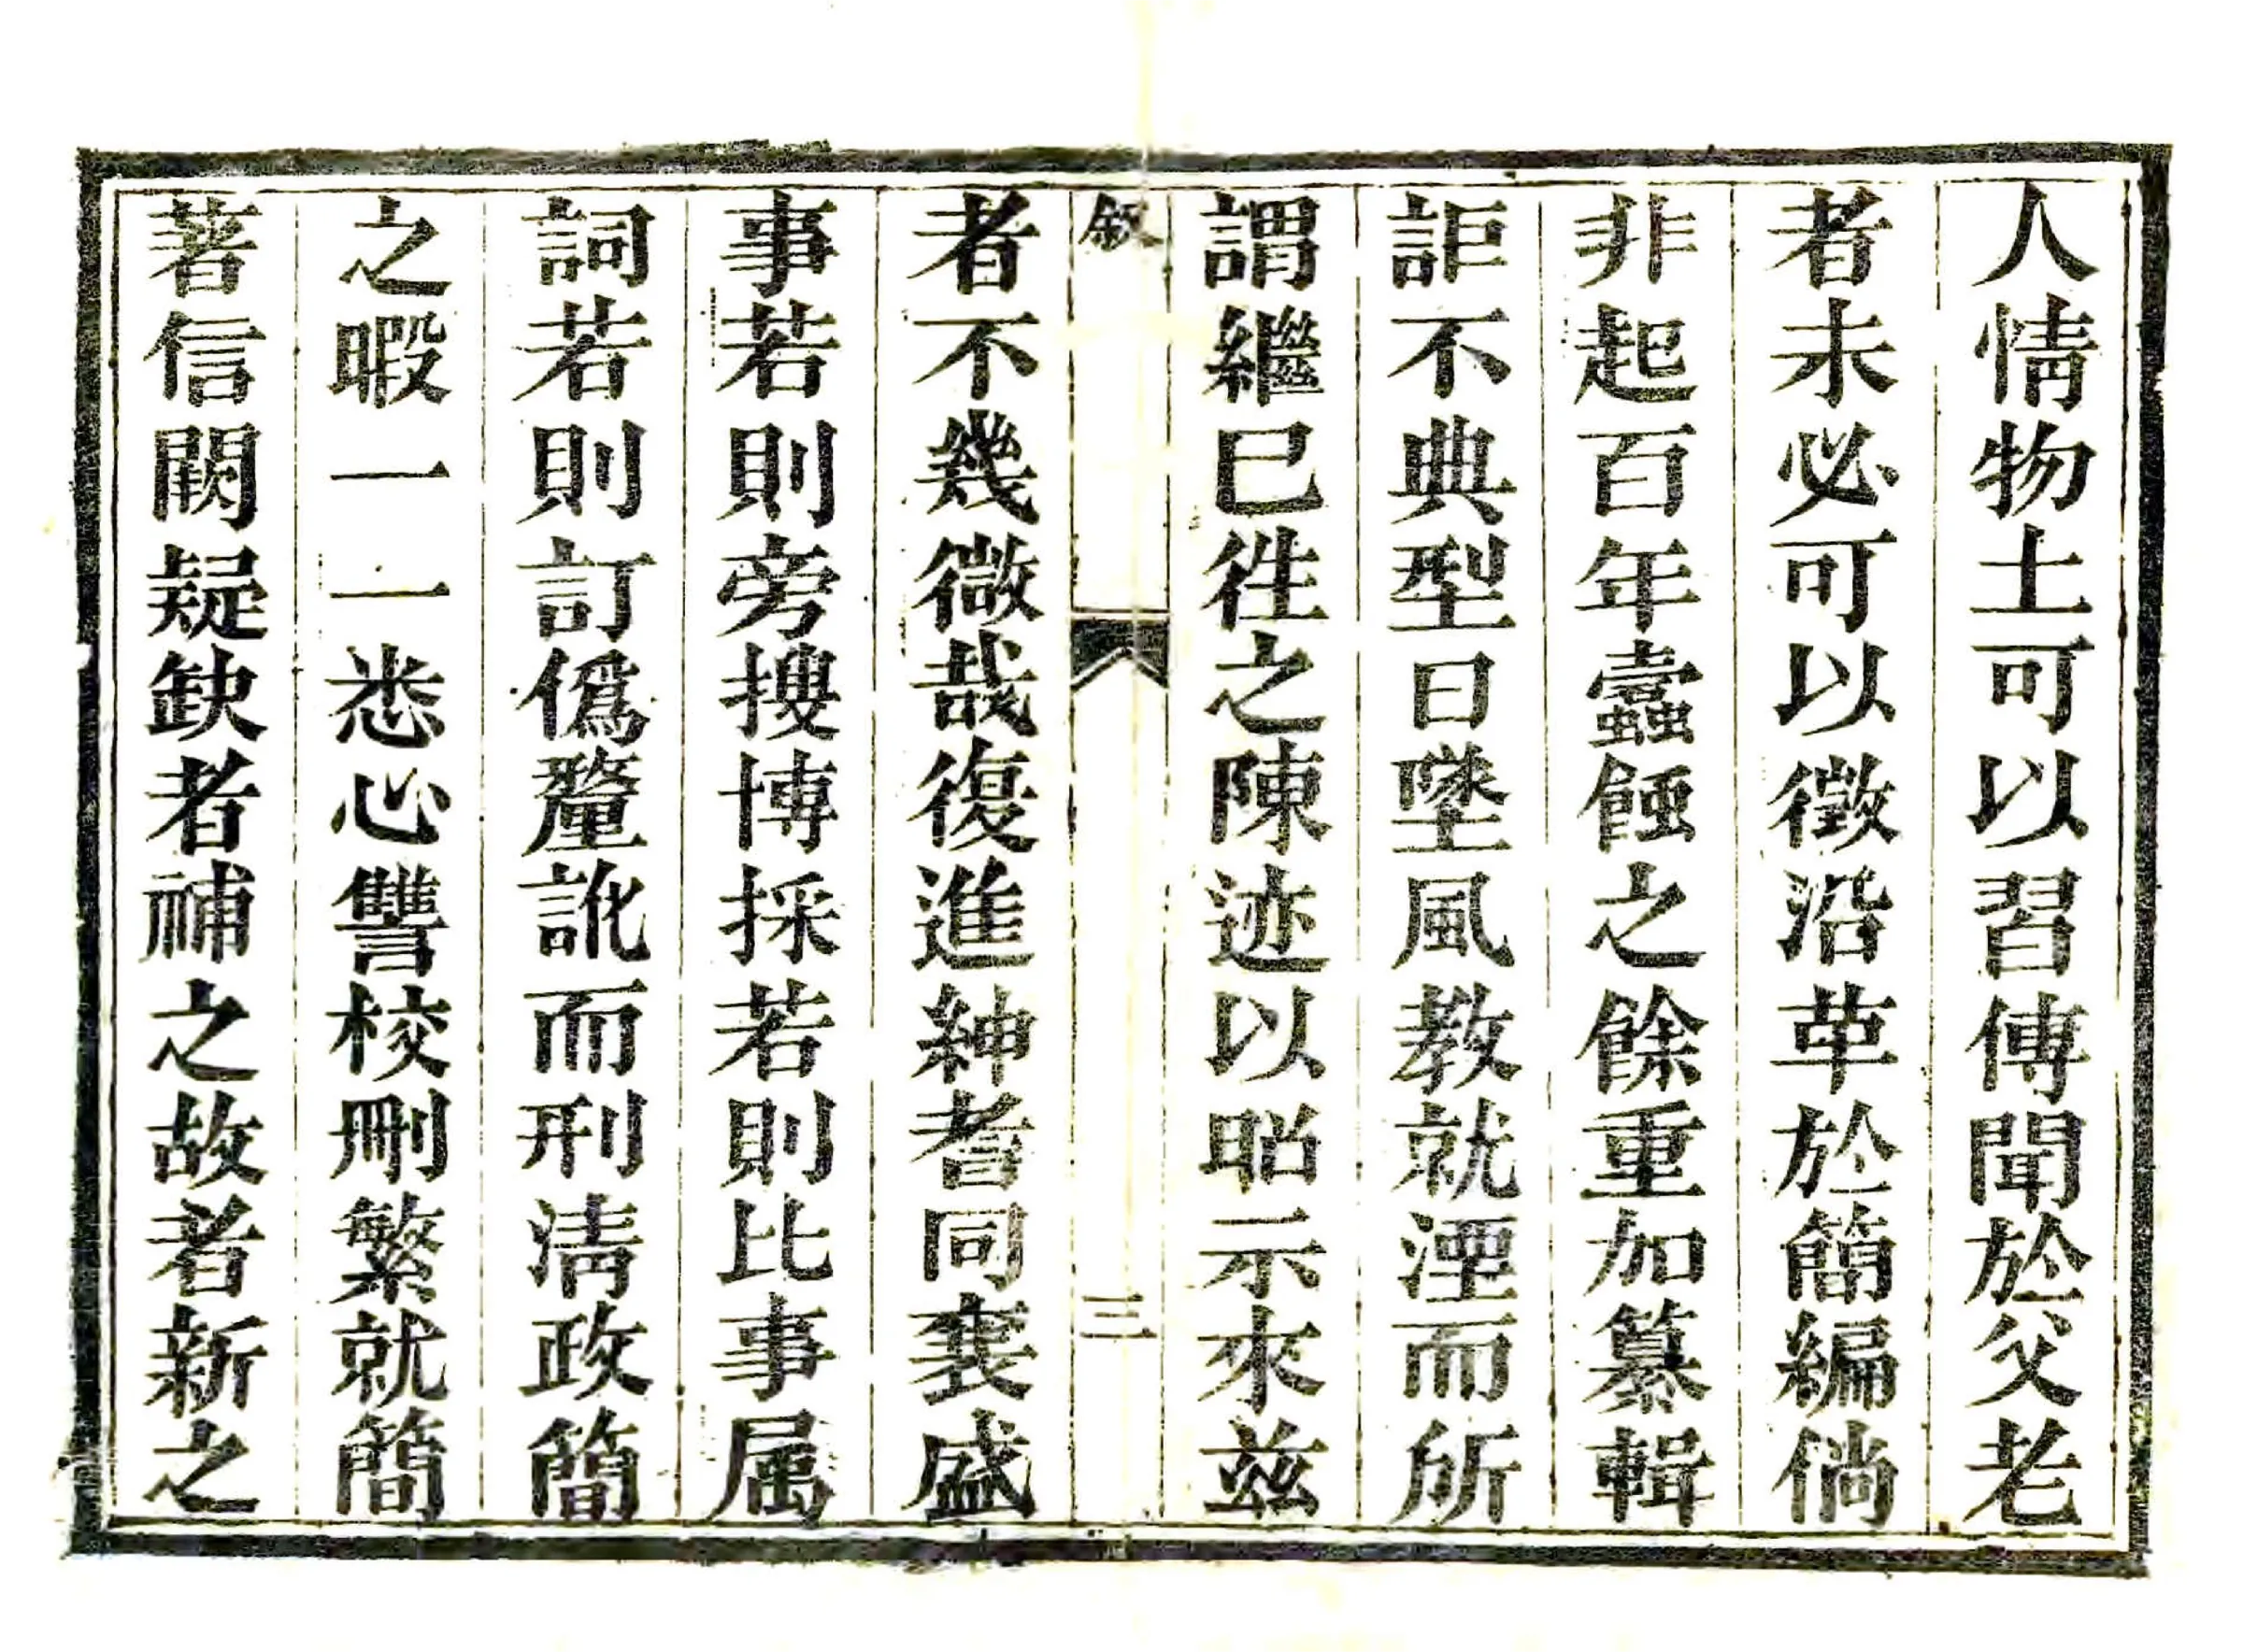 人情物土可以習傳聞於父老
者未必可以徵沿革於簡編倘
非起百年蠹蝕之餘重加纂輯
詎不典型日墜風教就湮而所
謂繼已徃之陳迹以昭示來茲
敘
三
者不幾微哉復進紳耆同襄盛
事若則旁搜博採若則比事属
詞若則訂僞釐訛而刑淸政簡
之暇一一悉心讐校刪繁就簡
著信闕疑缺者補之故者新之